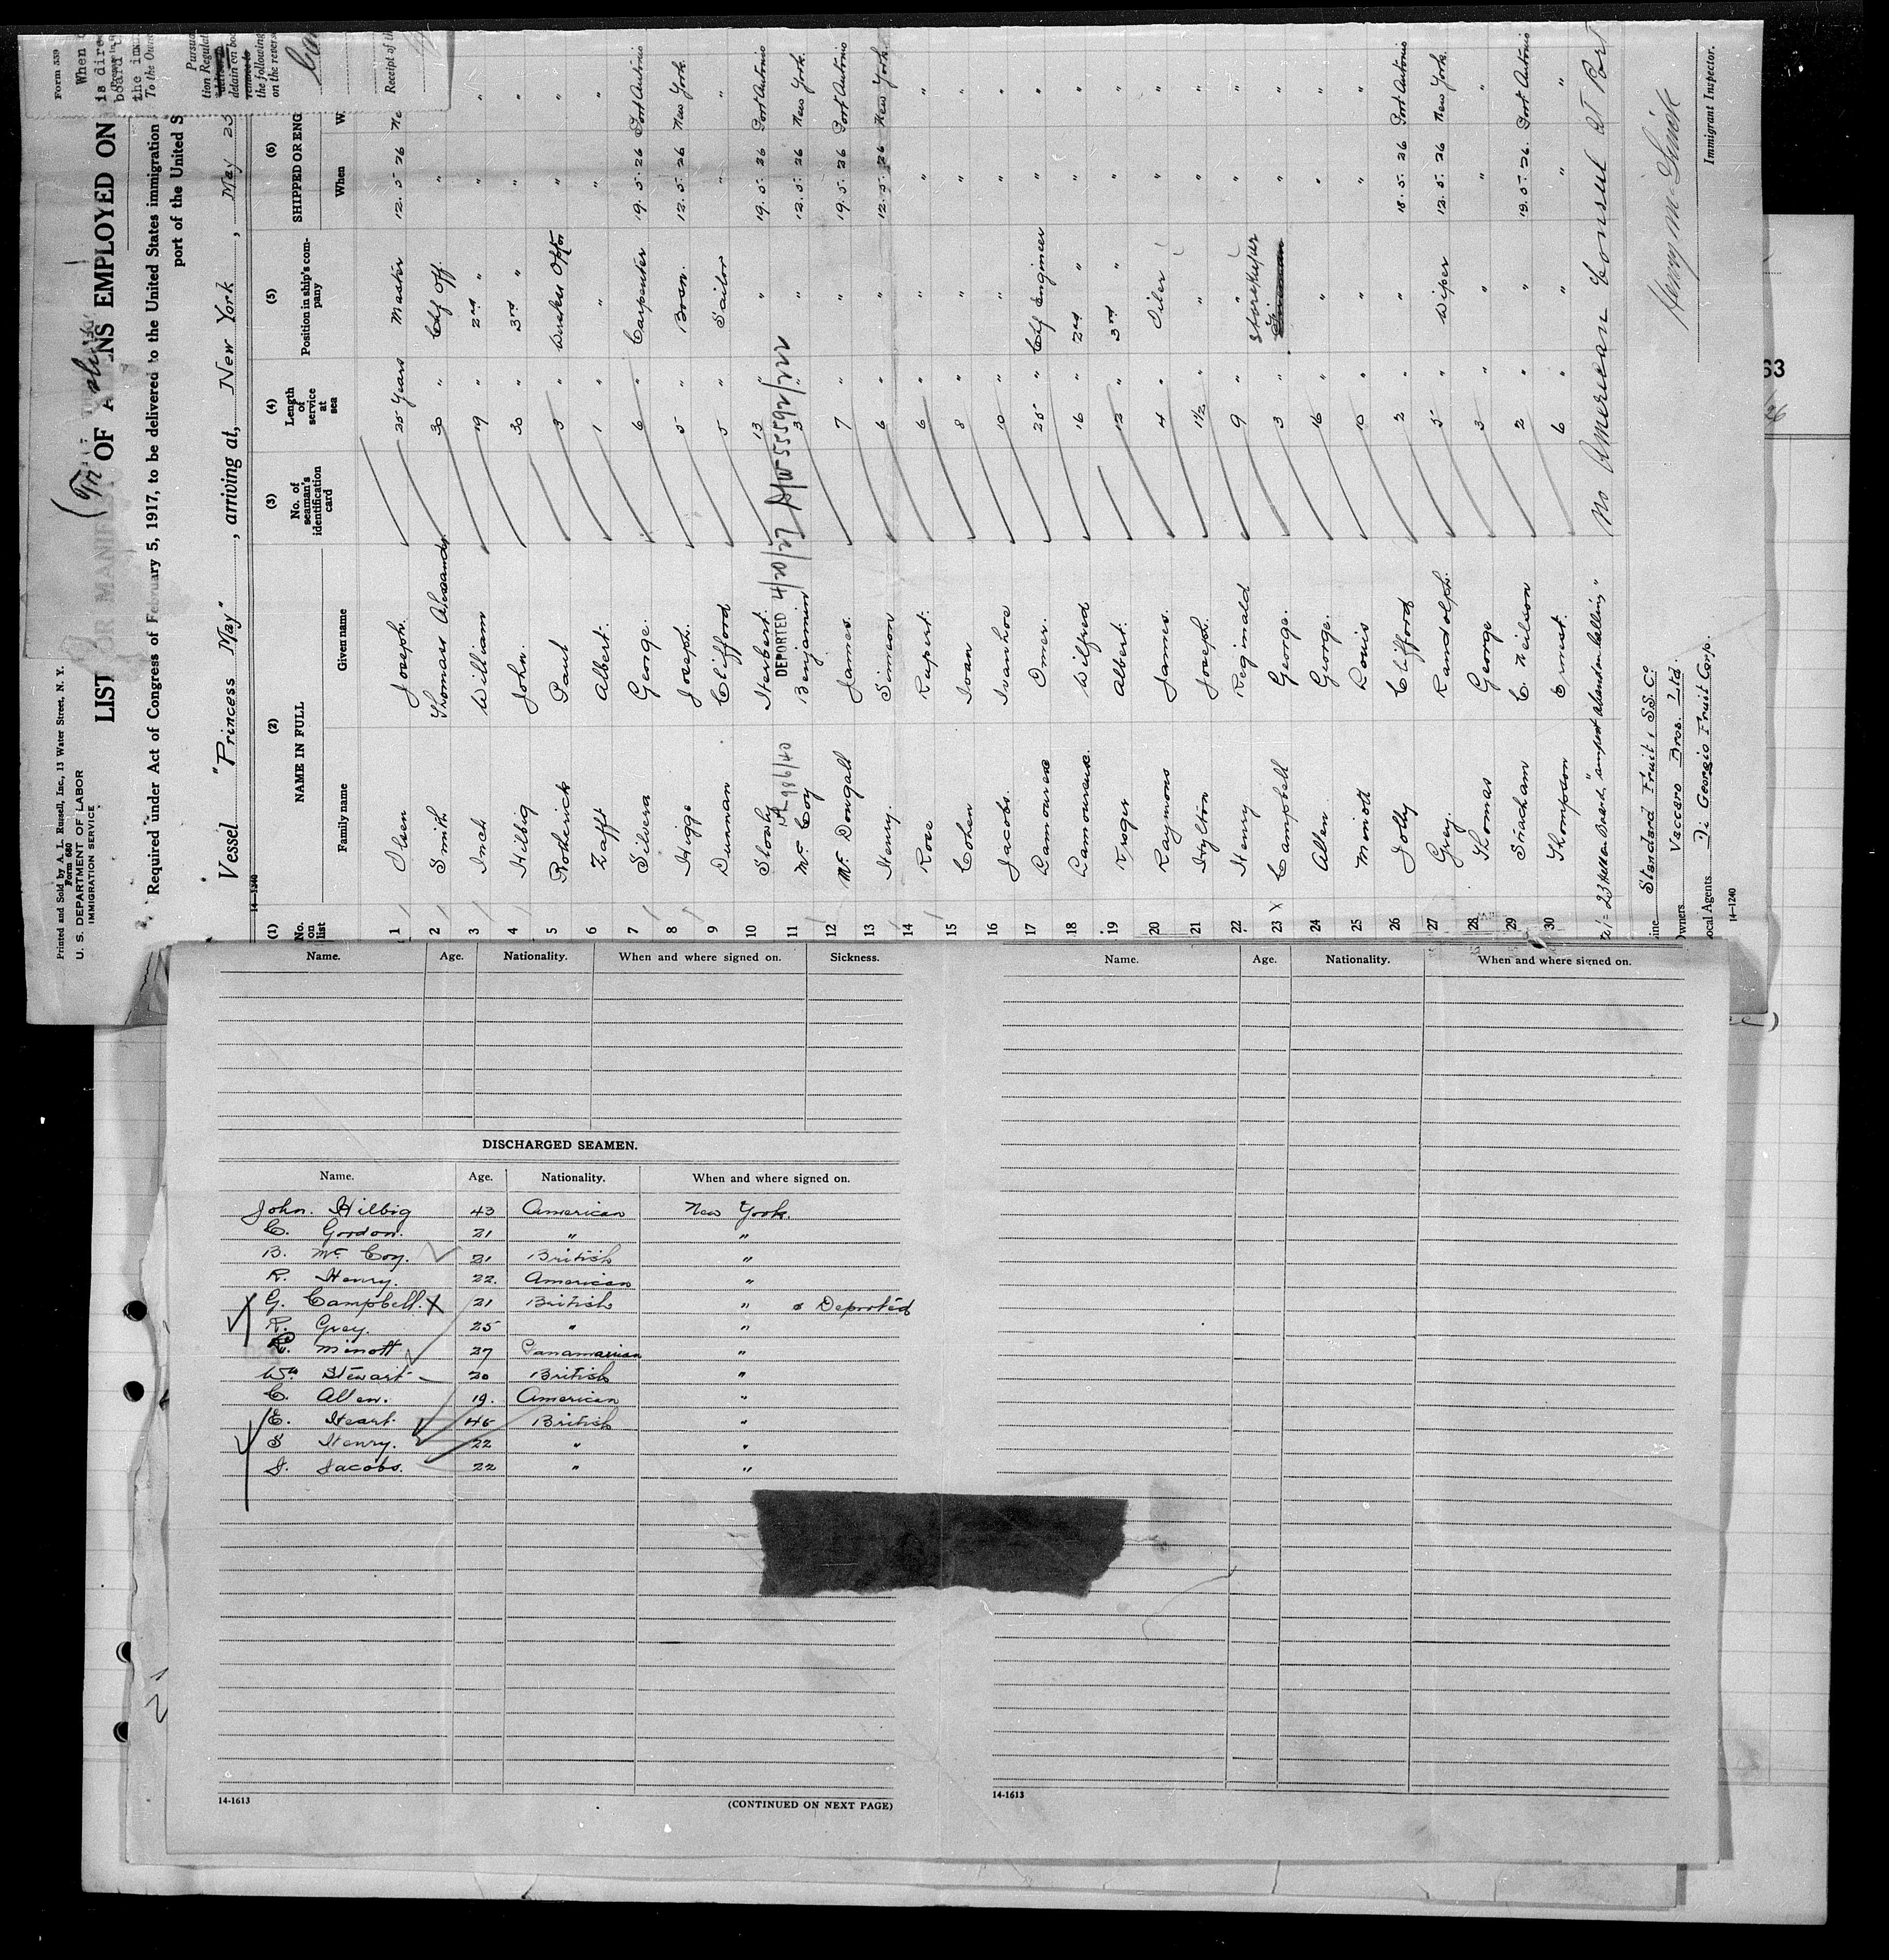 Form 539
When
is dire
board
the in
To the Own
Pursua
tion Regulat
detain on bo
the following
on the revers
Receipt of th
Printed and Sold by A. L. Russell, Inc., 13 Water Street, N. Y.
Form 680
U. S. DEPARTMENT OF LABOR
IMMIGRATION SERVICE
LIST OR MANIF OF A NS EMPLOYED ON
Required under Act of Congress of February 5, 1917, to be delivered to the United States immigration
port of the United S
Vessel "Princess May", arriving at, New York, May 23
14-1240
(1) No. on list (2) NAME IN FULL Family name Given name (3) No. of seaman's identification card (4) Length of service at sea (5) Position in ship's company (6) SHIPPED OR ENG When W
1 Olsen Joseph. 25 Years Master 12. 5. 26 Ne
2 Smith Thomas Alexander 30 " Chf Off. "
3 Inch William 19 " 2nd " " "
4 Hilbig John. 30 " 3rd " " "
5 Rotherick Paul 3 " Wireless Optor " "
6 Zafft Albert. 1 " " " "
7 Silvera George. 6 " Carpenter 19. 5. 26 Port Antonio
8 Higgs Joseph. 5 " Bosn. 12. 5. 26 New York.
9 Dunnan Clifford 5 " Sailor " "
10 Slowly Herbert. 13 " " 19. 5. 26 Port Antonio
DEPORTED 4/20/27
11 Mc Coy Benjamin 3 " " 12. 5. 26 New York.
12 Mc Dongall James. 7 " " 19. 5. 26 Port Antonio
13 Henry. Simeon 6 " " 12. 5. 26 New York.
14 Rose Rupert. 6 " " " "
15 Cohen Ivan 8 " " " "
16 Jacobs. Ivanhoe 10 " " " "
17 Lamoureux Omer. 25 " Chf Engineer " "
18 Lamoureux. Wilfred 16 " 2nd " " "
19 Kroger Albert. 12 " 3rd " " "
20 Raymond James. 4 " Oiler " "
21 Hylton Joseph. 1½ " " " "
22 Henry Reginald 9 " " " "
23 x Campbell George. 3 " Storekeeper Fireman " "
24 Allen George. 16 " " " "
25 Minott Louis 10 " " " "
26 Jolly Clifford 2 " " 18. 5. 26 Port Antonio
27 Grey. Randolph. 5 " Wiper 12. 5. 26 New York.
28 Thomas George 3 " " " "
29 Strachan C. Neilson 2 " " 19. 5. 26. Port Antonio
30 Thompson Ernest. 6 " " " "
No American Consul at Port
Standard Fruit & S.S. Co
Owners Vaccaro Bros. Ltd.
Local Agents Di Georgio Fruit Corp.
14-1240
Immigrant Inspector.
63
Name. Age. Nationality. When and where signed on. Sickness.
DISCHARGED SEAMEN.
Name. Age. Nationality. When and where signed on.
John. Hilbig 43 American New York.
C. Gordon. 21 " "
B. Mc Coy. 21 British "
R. Henry. 22. American "
G. Campbell. X 21 British " Deported
R. Grey. 25 " "
L. Minott 27 Panamanian "
Wm Stewart 20 British "
C. Allen. 19. American "
E. Heart. 45 British "
S Henry. 22 " "
I. Jacobs. 22 " "
14-1613
(CONTINUED ON NEXT PAGE)
Name. Age. Nationality. When and where signed on.
14-1613